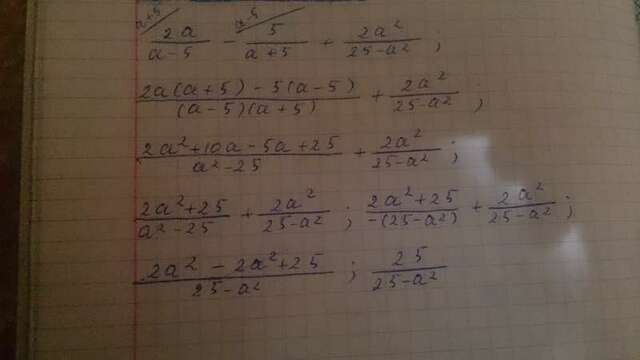 a+5 a-5
2a/(a-5) - 5/(a+5) + 2a²/(25-a²) ;
(2a(a+5) - 5(a-5))/((a-5)(a+5)) + 2a²/(25-a²) ;
(2a²+10a-5a+25)/(a²-25) + 2a²/(25-a²) ;
(2a²+25)/(a²-25) + 2a²/(25-a²) ; (2a²+25)/(-(25-a²)) + 2a²/(25-a²) ;
(2a² - 2a²+25)/(25-a²) ; 25/(25-a²)